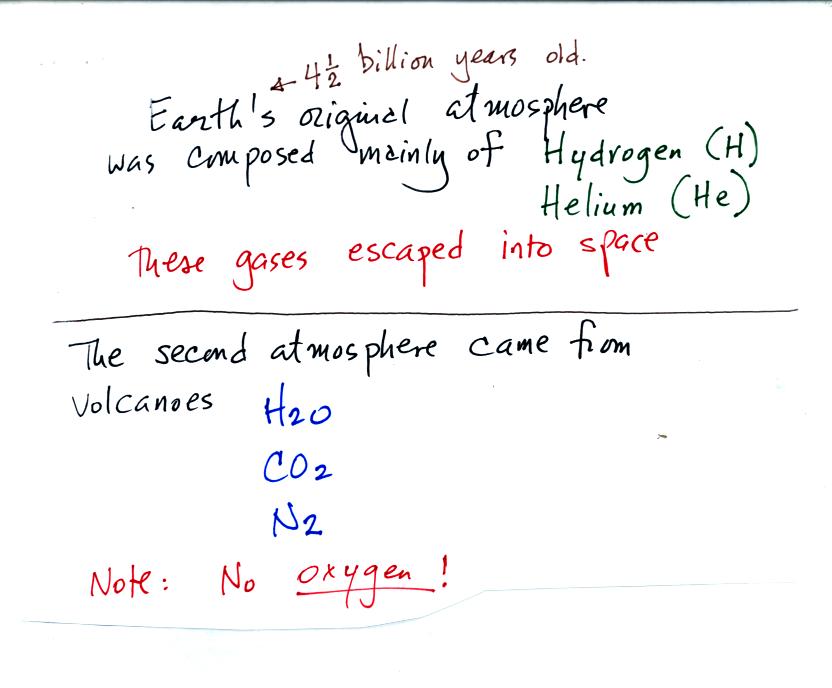 ← 4½ billion years old.
Earth's original atmosphere
was composed mainly of Hydrogen (H)
Helium (He)
These gases escaped into space
The second atmosphere came from
volcanoes H2O
CO2
N2
Note: No oxygen!